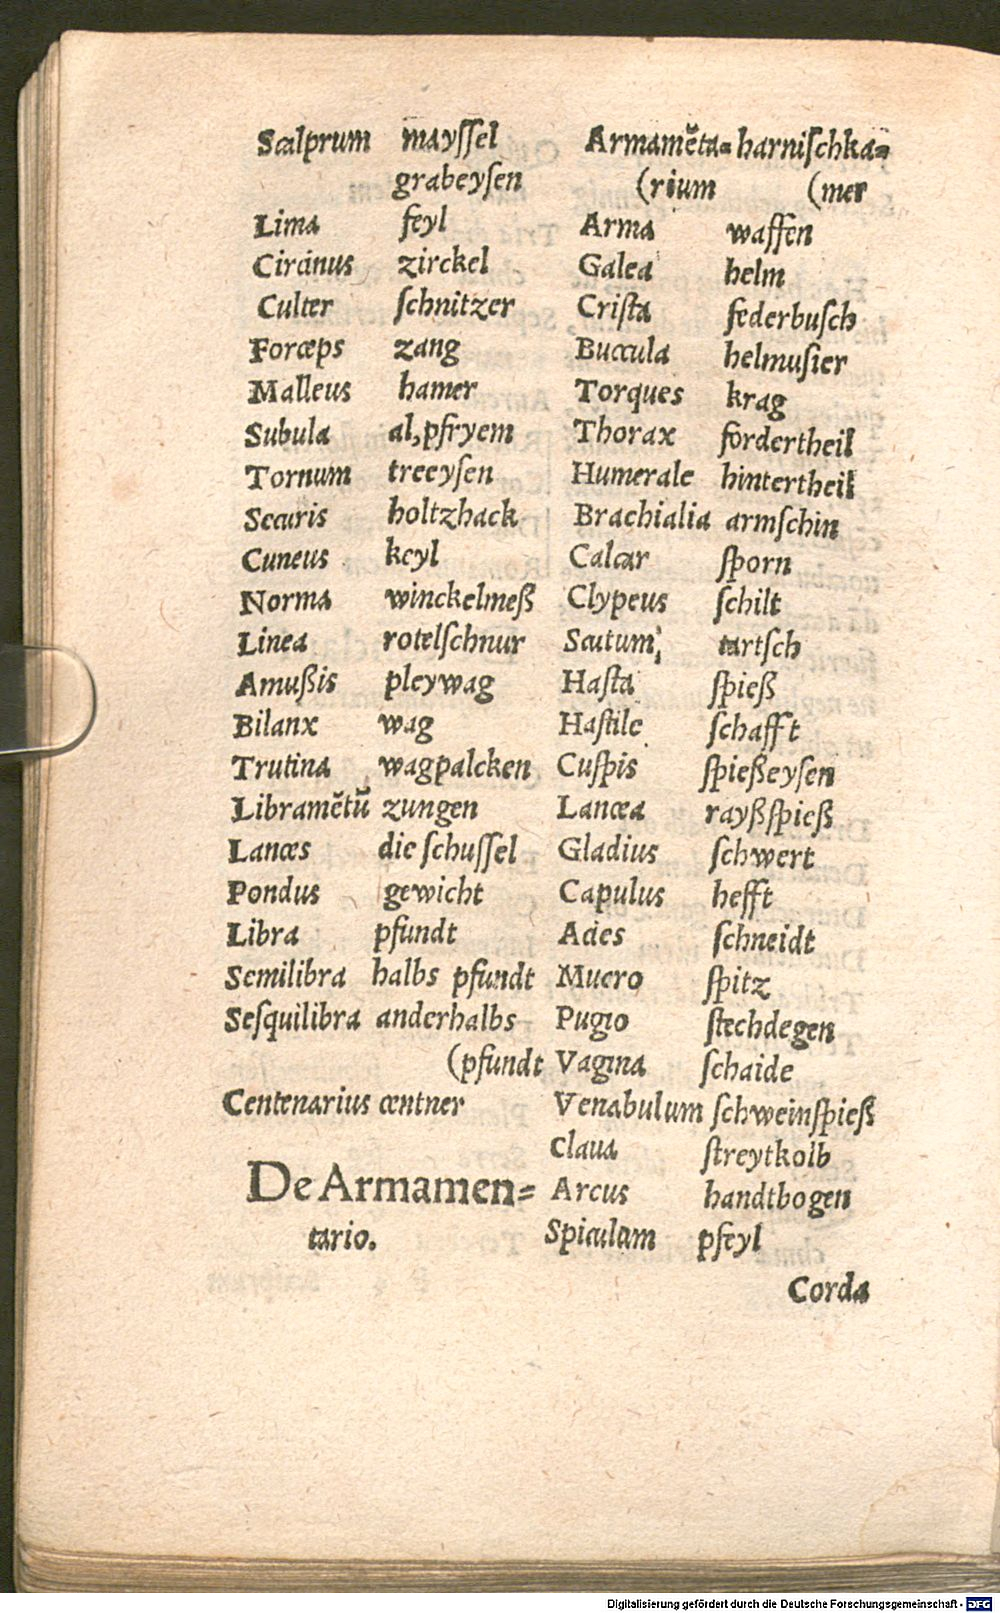 Scalprum mayſſel
grabeyſen
Lima feyl
Circinus zirckel
Culter ſchnitzer
Forceps zang
Malleus hamer
Subula al, pfryem
Tornum treeyſen
Securis holtzhack
Cuneus keyl
Norma winckelmeß
Linea rotelſchnur
Amußis pleywag
Bilanx wag
Trutina wagpalcken
Libramẽtũ zungen
Lances die ſchuſſel
Pondus gewicht
Libra pfundt
Semilibra halbs pfundt
Seſquilibra anderhalbs
(pfundt
Centenarius centner
De Armamen=
tario.
Armamẽta= harniſchka=
(rium (mer
Arma waffen
Galea helm
Criſta federbuſch
Buccula helmuſier
Torques krag
Thorax fordertheil
Humerale hintertheil
Brachialia armſchin
Calcar ſporn
Clypeus ſchilt
Scutum, tartſch
Haſta ſpieß
Haſtile ſchafft
Cuſpis ſpießeyſen
Lancea rayßſpieß
Gladius ſchwert
Capulus hefft
Acies ſchneidt
Mucro ſpitz
Pugio ſtechdegen
Vagina ſchaide
Venabulum ſchweinſpieß
Claua ſtreytkolb
Arcus handtbogen
Spiculum pfeyl
Corda
Digitalisierung gefördert durch die Deutsche Forschungsgemeinschaft - DFG